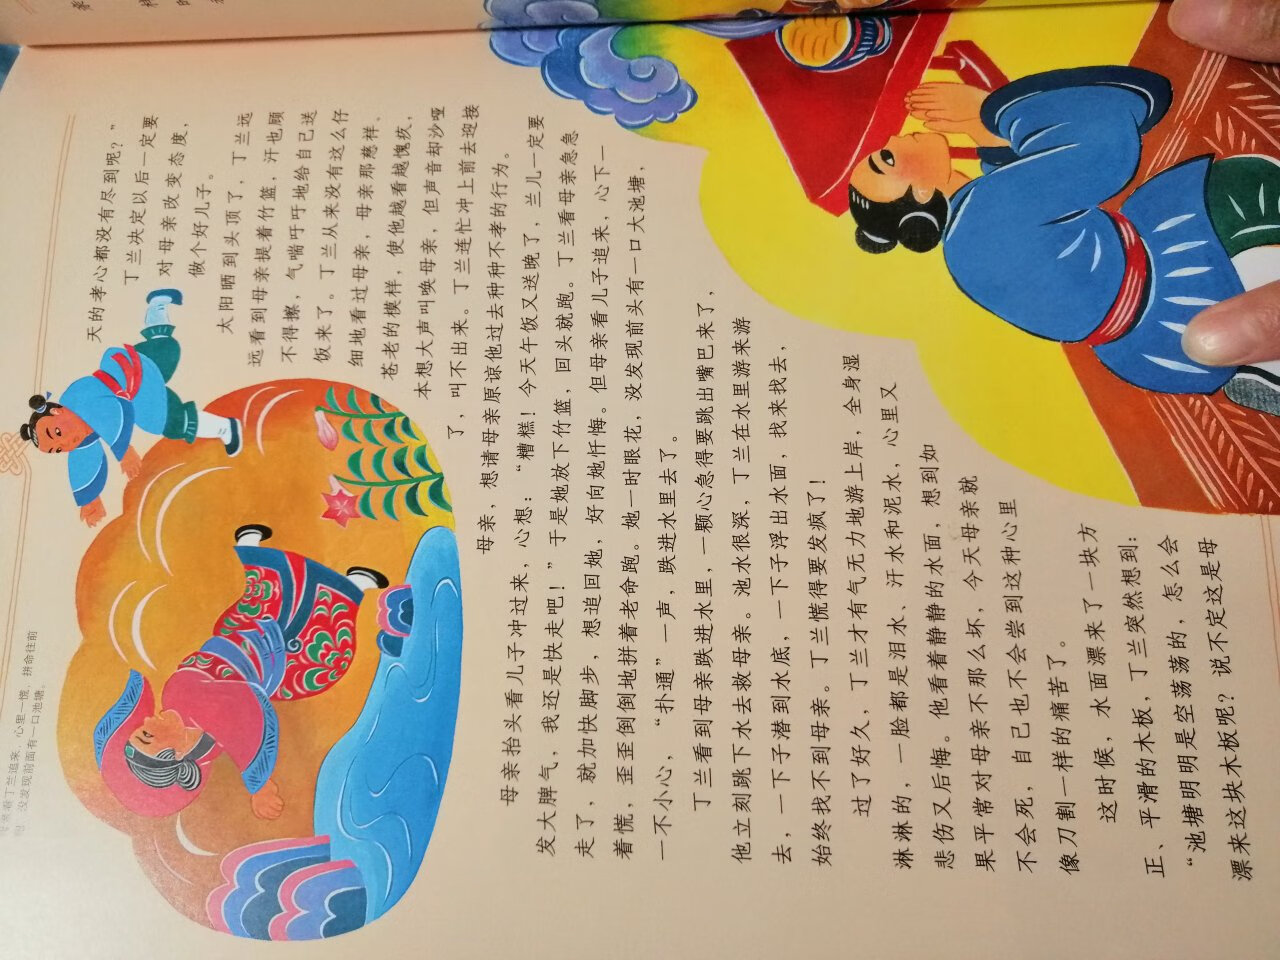 天的孝心都没有尽到呢？”
丁兰决定以后一定要
对母亲改变态度，
做个好儿子。
太阳晒到头顶了，丁兰远
远看到母亲提着竹篮，汗也顾
不得擦，气喘吁吁地给自己送
饭来了。丁兰从来没有这么仔
细地看过母亲，母亲那慈祥、
苍老的模样，使他越看越愧疚，
本想大声叫唤母亲，但声音却沙哑
了，叫不出来。丁兰连忙冲上前去迎接
母亲，想请母亲原谅他过去种种不孝的行为。
母亲抬头看儿子冲过来，心想：“糟糕！今天午饭又送晚了，兰儿一定要
发大脾气，我还是快走吧！”于是她放下竹篮，回头就跑。丁兰看母亲急急
走了，就加快脚步，想追回她，好向她忏悔。但母亲看儿子追来，心下一
着慌，歪歪倒倒地拼着老命跑。她一时眼花，没发现前头有一口大池塘，
一不小心，“扑通”一声，跌进水里去了。
丁兰看到母亲跌进水里，一颗心急得要跳出嘴巴来了，
他立刻跳下水去救母亲。池水很深，丁兰在水里游来游
去，一下子潜到水底，一下子浮出水面，找来找去，
始终找不到母亲。丁兰慌得要发疯了！
过了好久，丁兰才有气无力地游上岸，全身湿
淋淋的，一脸都是泪水、汗水和泥水，心里又
悲伤又后悔。他看着静静的水面，想到如
果平常对母亲不那么坏，今天母亲就
不会死，自己也不会尝到这种心里
像刀割一样的痛苦了。
这时候，水面漂来了一块方
正、平滑的木板，丁兰突然想到：
“池塘明明是空荡荡的，怎么会
漂来这块木板呢？说不定这是母
丁兰追来，心里一慌，拼命往前
没发现前面有一口池塘。